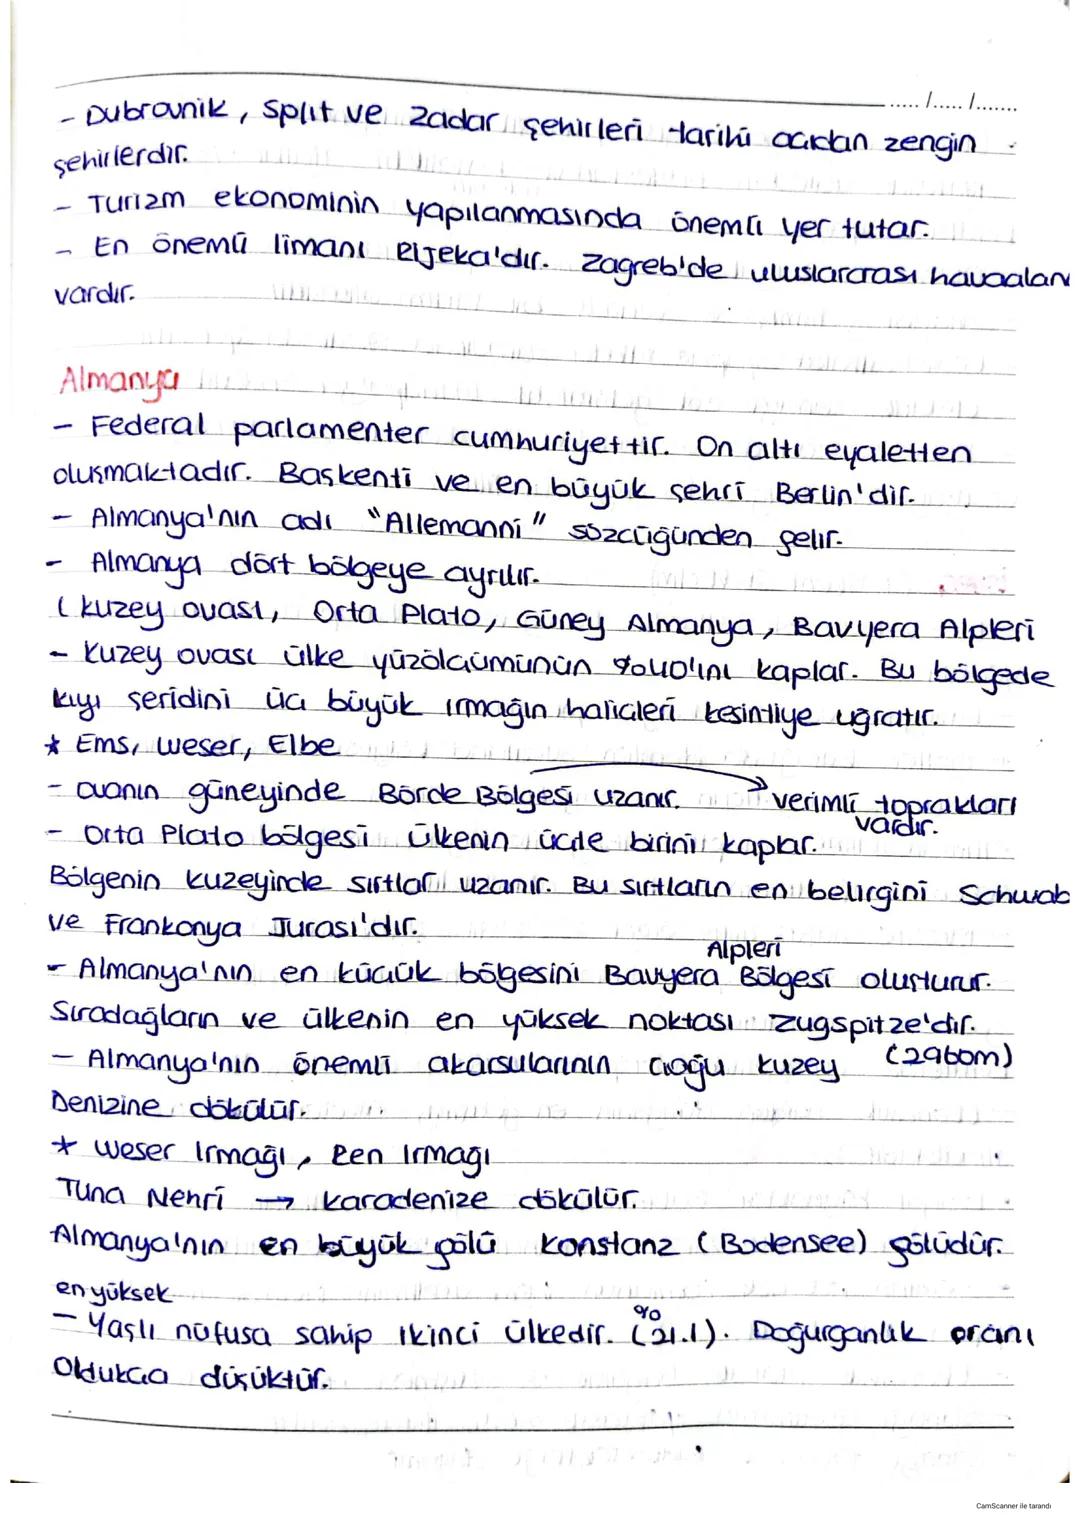 ...../...../.......
- Dubrovnik, Split ve Zadar şehirleri tarihi açıdan zengin
şehirlerdir.
- Turizm ekonominin yapılanmasında önemli yer tutar.
- En önemli limanı Rijeka'dır. Zagreb'de uluslararası havaalanı
vardır.
Almanya
- Federal parlamenter cumhuriyettir. On altı eyaletten
oluşmaktadır. Başkenti ve en büyük şehri Berlin'dir.
- Almanya'nın adı "Allemanni" sözcüğünden gelir.
- Almanya dört bölgeye ayrılır.
( Kuzey ovası, Orta Plato, Güney Almanya, Bavyera Alpleri
- Kuzey ovası ülke yüzölçümünün %40'ını kaplar. Bu bölgede
kıyı şeridini üç büyük ırmağın haliçleri kesintiye uğratır.
* Ems, Weser, Elbe
- Ovanın güneyinde Börde Bölgesi uzanır. → verimli toprakları
vardır.
- Orta Plato bölgesi ülkenin üçte birini kaplar.
Bölgenin kuzeyinde sırtlar uzanır. Bu sırtların en belirgini Schwab
ve Frankonya Jurası'dır.
Alpleri
- Almanya'nın en küçük bölgesini Bavyera Bölgesi oluşturur.
Sıradağların ve ülkenin en yüksek noktası Zugspitze'dir.
(2960m)
- Almanya'nın önemli akarsularının çoğu kuzey
Denizine dökülür.
* Weser Irmağı, Ren Irmağı
Tuna Nehri → Karadenize dökülür.
Almanya'nın en büyük gölü Konstanz (Bodensee) gölüdür.
en yüksek
- Yaşlı nüfusa sahip ikinci ülkedir. (%21.1). Doğurganlık oranı
Oldukça düşüktür.
CamScanner ile tarandı